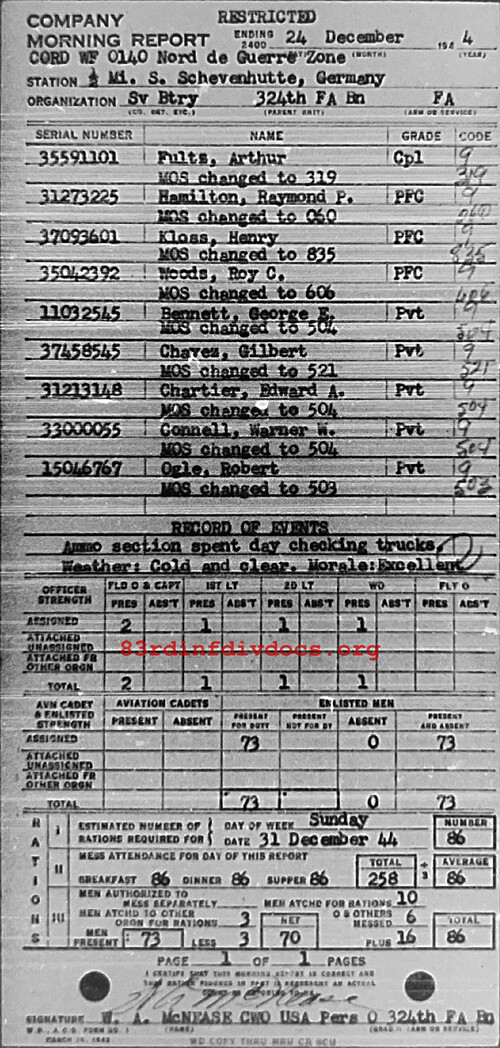 COMPANY RESTRICTED
MORNING REPORT ENDING 2400 24 December 1944
(DAY) (MONTH) (YEAR)
CORD WF 0140 Nord de Guerre Zone
STATION ½ Mi. S. Schevenhutte, Germany
ORGANIZATION Sv Btry 324th FA Bn FA
(CO. DET. ETC.) (PARENT UNIT) (ARM OR SERVICE)
SERIAL NUMBER NAME GRADE CODE
35591101 Fults, Arthur Cpl 9
MOS changed to 319 319
31273225 Hamilton, Raymond P. PFC 9
MOS changed to 060 060
37093601 Kloss, Henry PFC 9
MOS changed to 835 835
35042392 Woods, Roy C. PFC 9
MOS changed to 606
11032545 Bennett, George E. Pvt 9
MOS changed to 504 504
37458545 Chavez, Gilbert Pvt 9
MOS changed to 521 521
31213148 Chartier, Edward A. Pvt 9
MOS changed to 504 504
33000055 Connell, Warner W. Pvt 9
MOS changed to 504 504
15046767 Ogle, Robert Pvt 9
MOS changed to 503 503
RECORD OF EVENTS
Ammo section spent day checking trucks.
Weather: Cold and clear. Morale:Excellent
OFFICER STRENGTH FLD O & CAPT 1ST LT 2D LT WO FLT O
PRES ABS'T PRES ABS'T PRES ABS'T PRES ABS'T PRES ABS'T
ASSIGNED 2 1 1 1
ATTACHED UNASSIGNED
83rdinfdivdocs.org
ATTACHED FR OTHER ORGN
TOTAL 2 1 1 1
AVN CADET & ENLISTED STRENGTH AVIATION CADETS ENLISTED MEN
PRESENT ABSENT PRESENT FOR DUTY PRESENT NOT FOR DY ABSENT PRESENT AND ABSENT
ASSIGNED 73 0 73
ATTACHED UNASSIGNED
ATTACHED FR OTHER ORGN
TOTAL 73 0 73
RATIONS
I ESTIMATED NUMBER OF RATIONS REQUIRED FOR DAY OF WEEK Sunday NUMBER
DATE 31 December 44 86
II MESS ATTENDANCE FOR DAY OF THIS REPORT TOTAL ÷ 3 AVERAGE
BREAKFAST 86 DINNER 86 SUPPER 86 258 86
III MEN AUTHORIZED TO MESS SEPARATELY MEN ATCHD FOR RATIONS 10
MEN ATCHD TO OTHER ORGN FOR RATIONS 3 NET O & OTHERS MESSED 6 TOTAL
MEN PRESENT 73 LESS 3 70 PLUS 16 86
PAGE 1 OF 1 PAGES
I CERTIFY THAT THIS MORNING REPORT IS CORRECT AND
THAT RATION FIGURES IN PART III REPRESENT AN ACTUAL
SIGNATURE W. A. McNEASE CWO USA Pers O 324th FA Bn
W.D., A.G.O. FORM NO. 1 (NAME) (GRADE) (ARM OR SERVICE)
WD COPY THRU MRU OR SCU